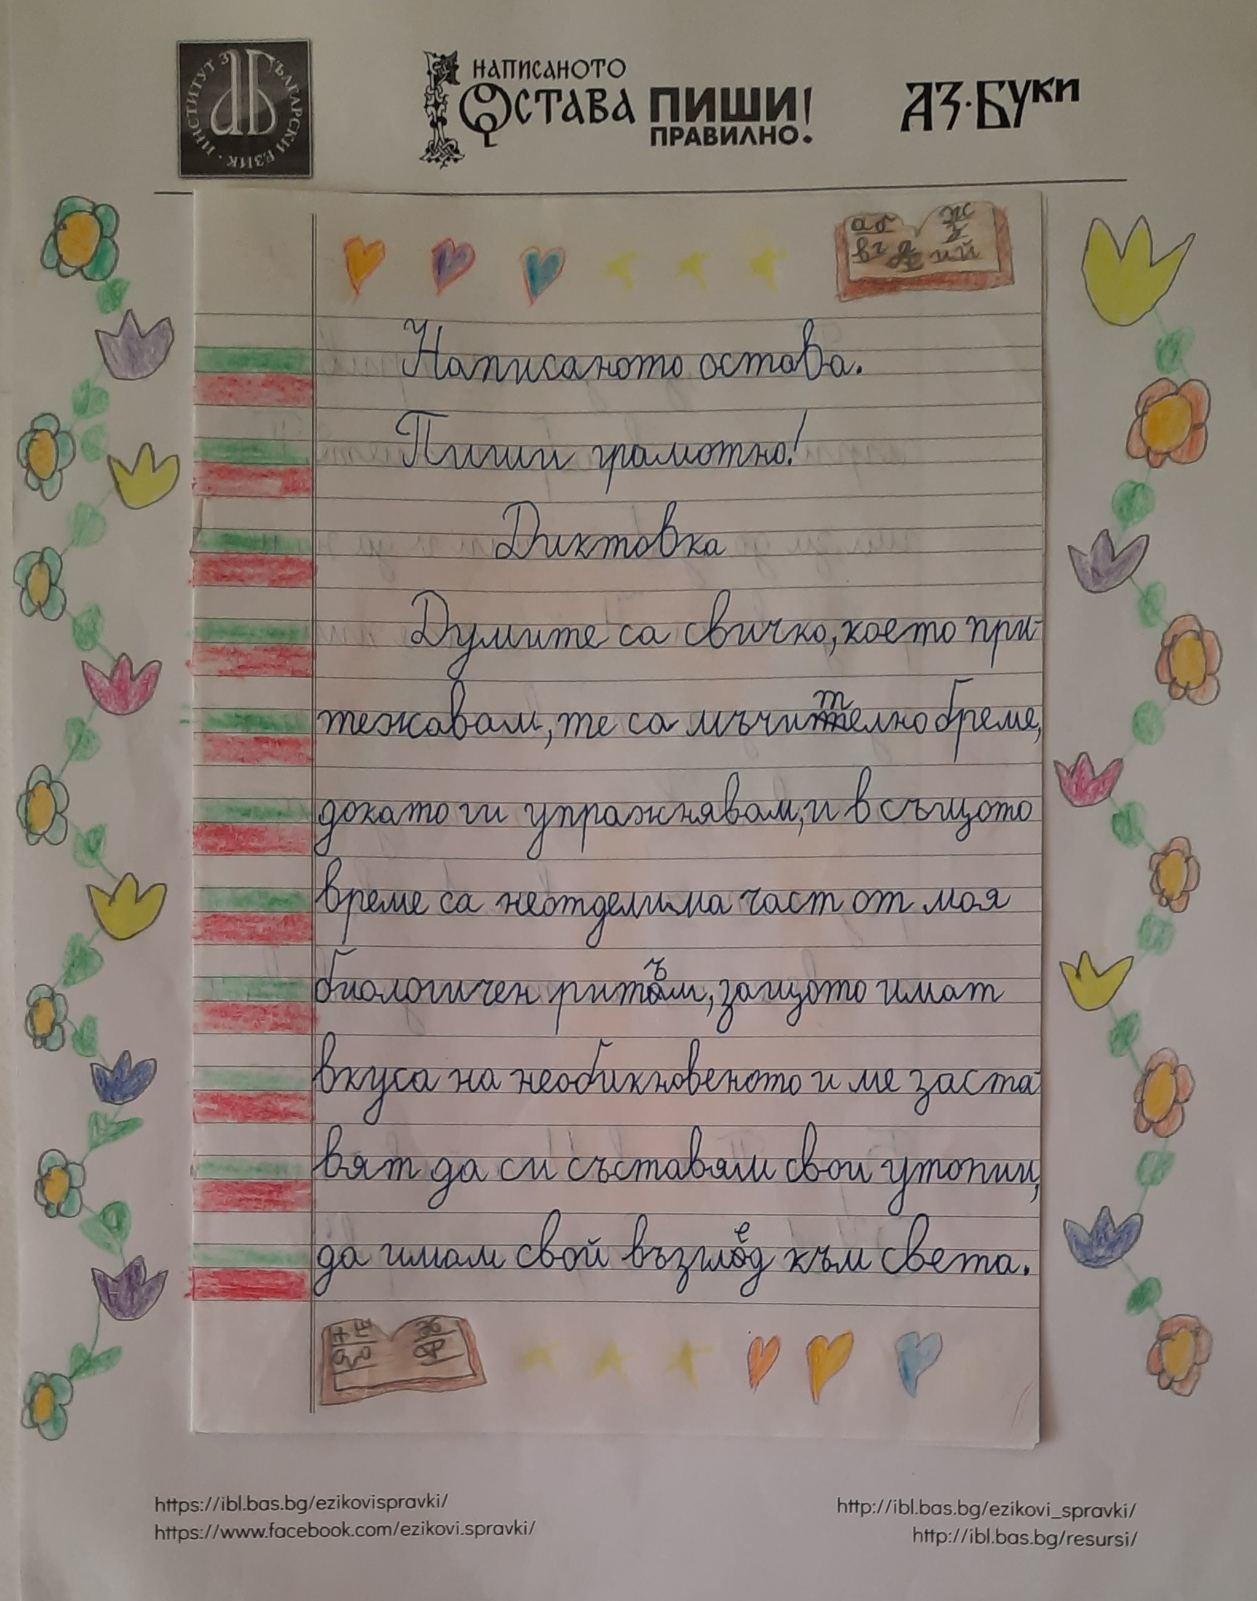 ИНСТИТУТ ЗА БЪЛГАРСКИ ЕЗИК
НАПИСАНОТО
ОСТАВА ПИШИ
ПРАВИЛНО!
АЗ·БУКИ
аб жс
вг де ий
Написаното остава.
Пиши грамотно!
Диктовка
Думите са свичко, което при-
тежавам, те са мъчително бреме,
докато ги упражнявам, и в същото
време са неотделима част от моя
биологичен ритъм, защото имат
вкуса на необикновеното и ме заста-
вят да си съставям свои утопии,
да имам свой възглед към света.
https://ibl.bas.bg/ezikovispravki/
https://www.facebook.com/ezikovi.spravki/
http://ibl.bas.bg/ezikovi_spravki/
http://ibl.bas.bg/resursi/